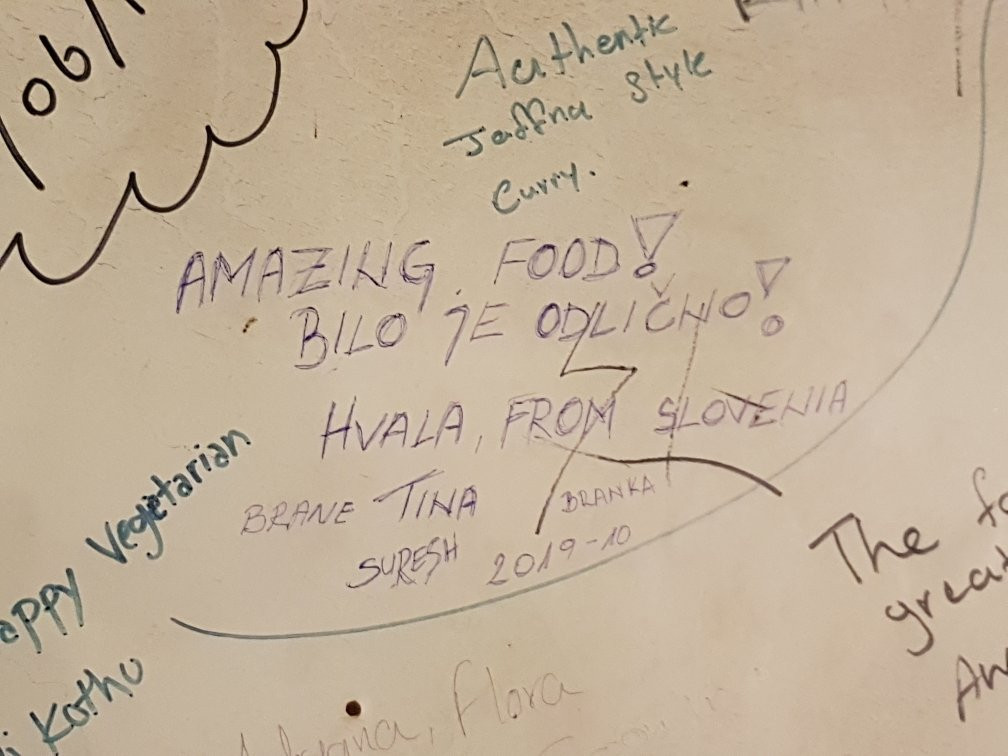 Authentic
Jaffna style
Curry.
AMAZING FOOD!
BILO JE ODLIČNO!
HVALA, FROM SLOVENIA
BRANE TINA BRANKA
SURESH 2019-10
Vegetarian
Kothu
The
Flora